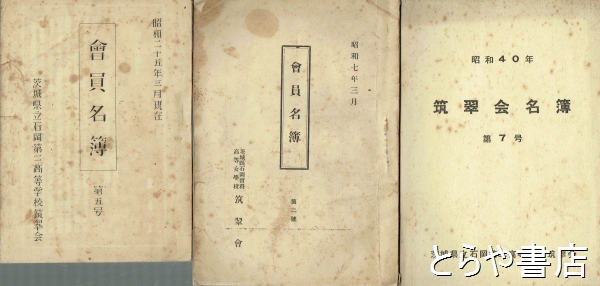 昭和二十五年三月現在
會員名簿
第五号
茨城県立石岡第二高等学校筑翠会
昭和七年三月
會員名簿
茨城縣石岡實科
高等女學校
筑翠會
第二號
昭和40年
筑翠会名簿
第7号
茨城県立石岡
とらや書店